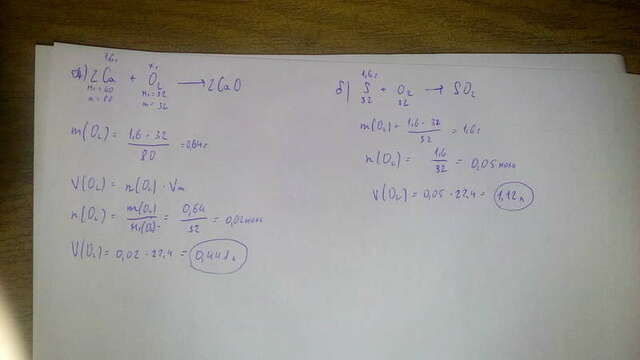 1,6г
а) 2Ca + O₂ → 2CaO
M=40 M=32
m=80 m=32
m(O₂) = 1,6 · 32 / 80 = 0,64г
V(O₂) = n(O₂) · Vm
n(O₂) = m(O₂) / M(O₂) = 0,64 / 32 = 0,02 моль
V(O₂) = 0,02 · 22,4 = 0,448 л
1,6г
б) S + O₂ → SO₂
32 32
m(O₂) = 1,6 · 32 / 32 = 1,6г
n(O₂) = 1,6 / 32 = 0,05 моль
V(O₂) = 0,05 · 22,4 = 1,12 л